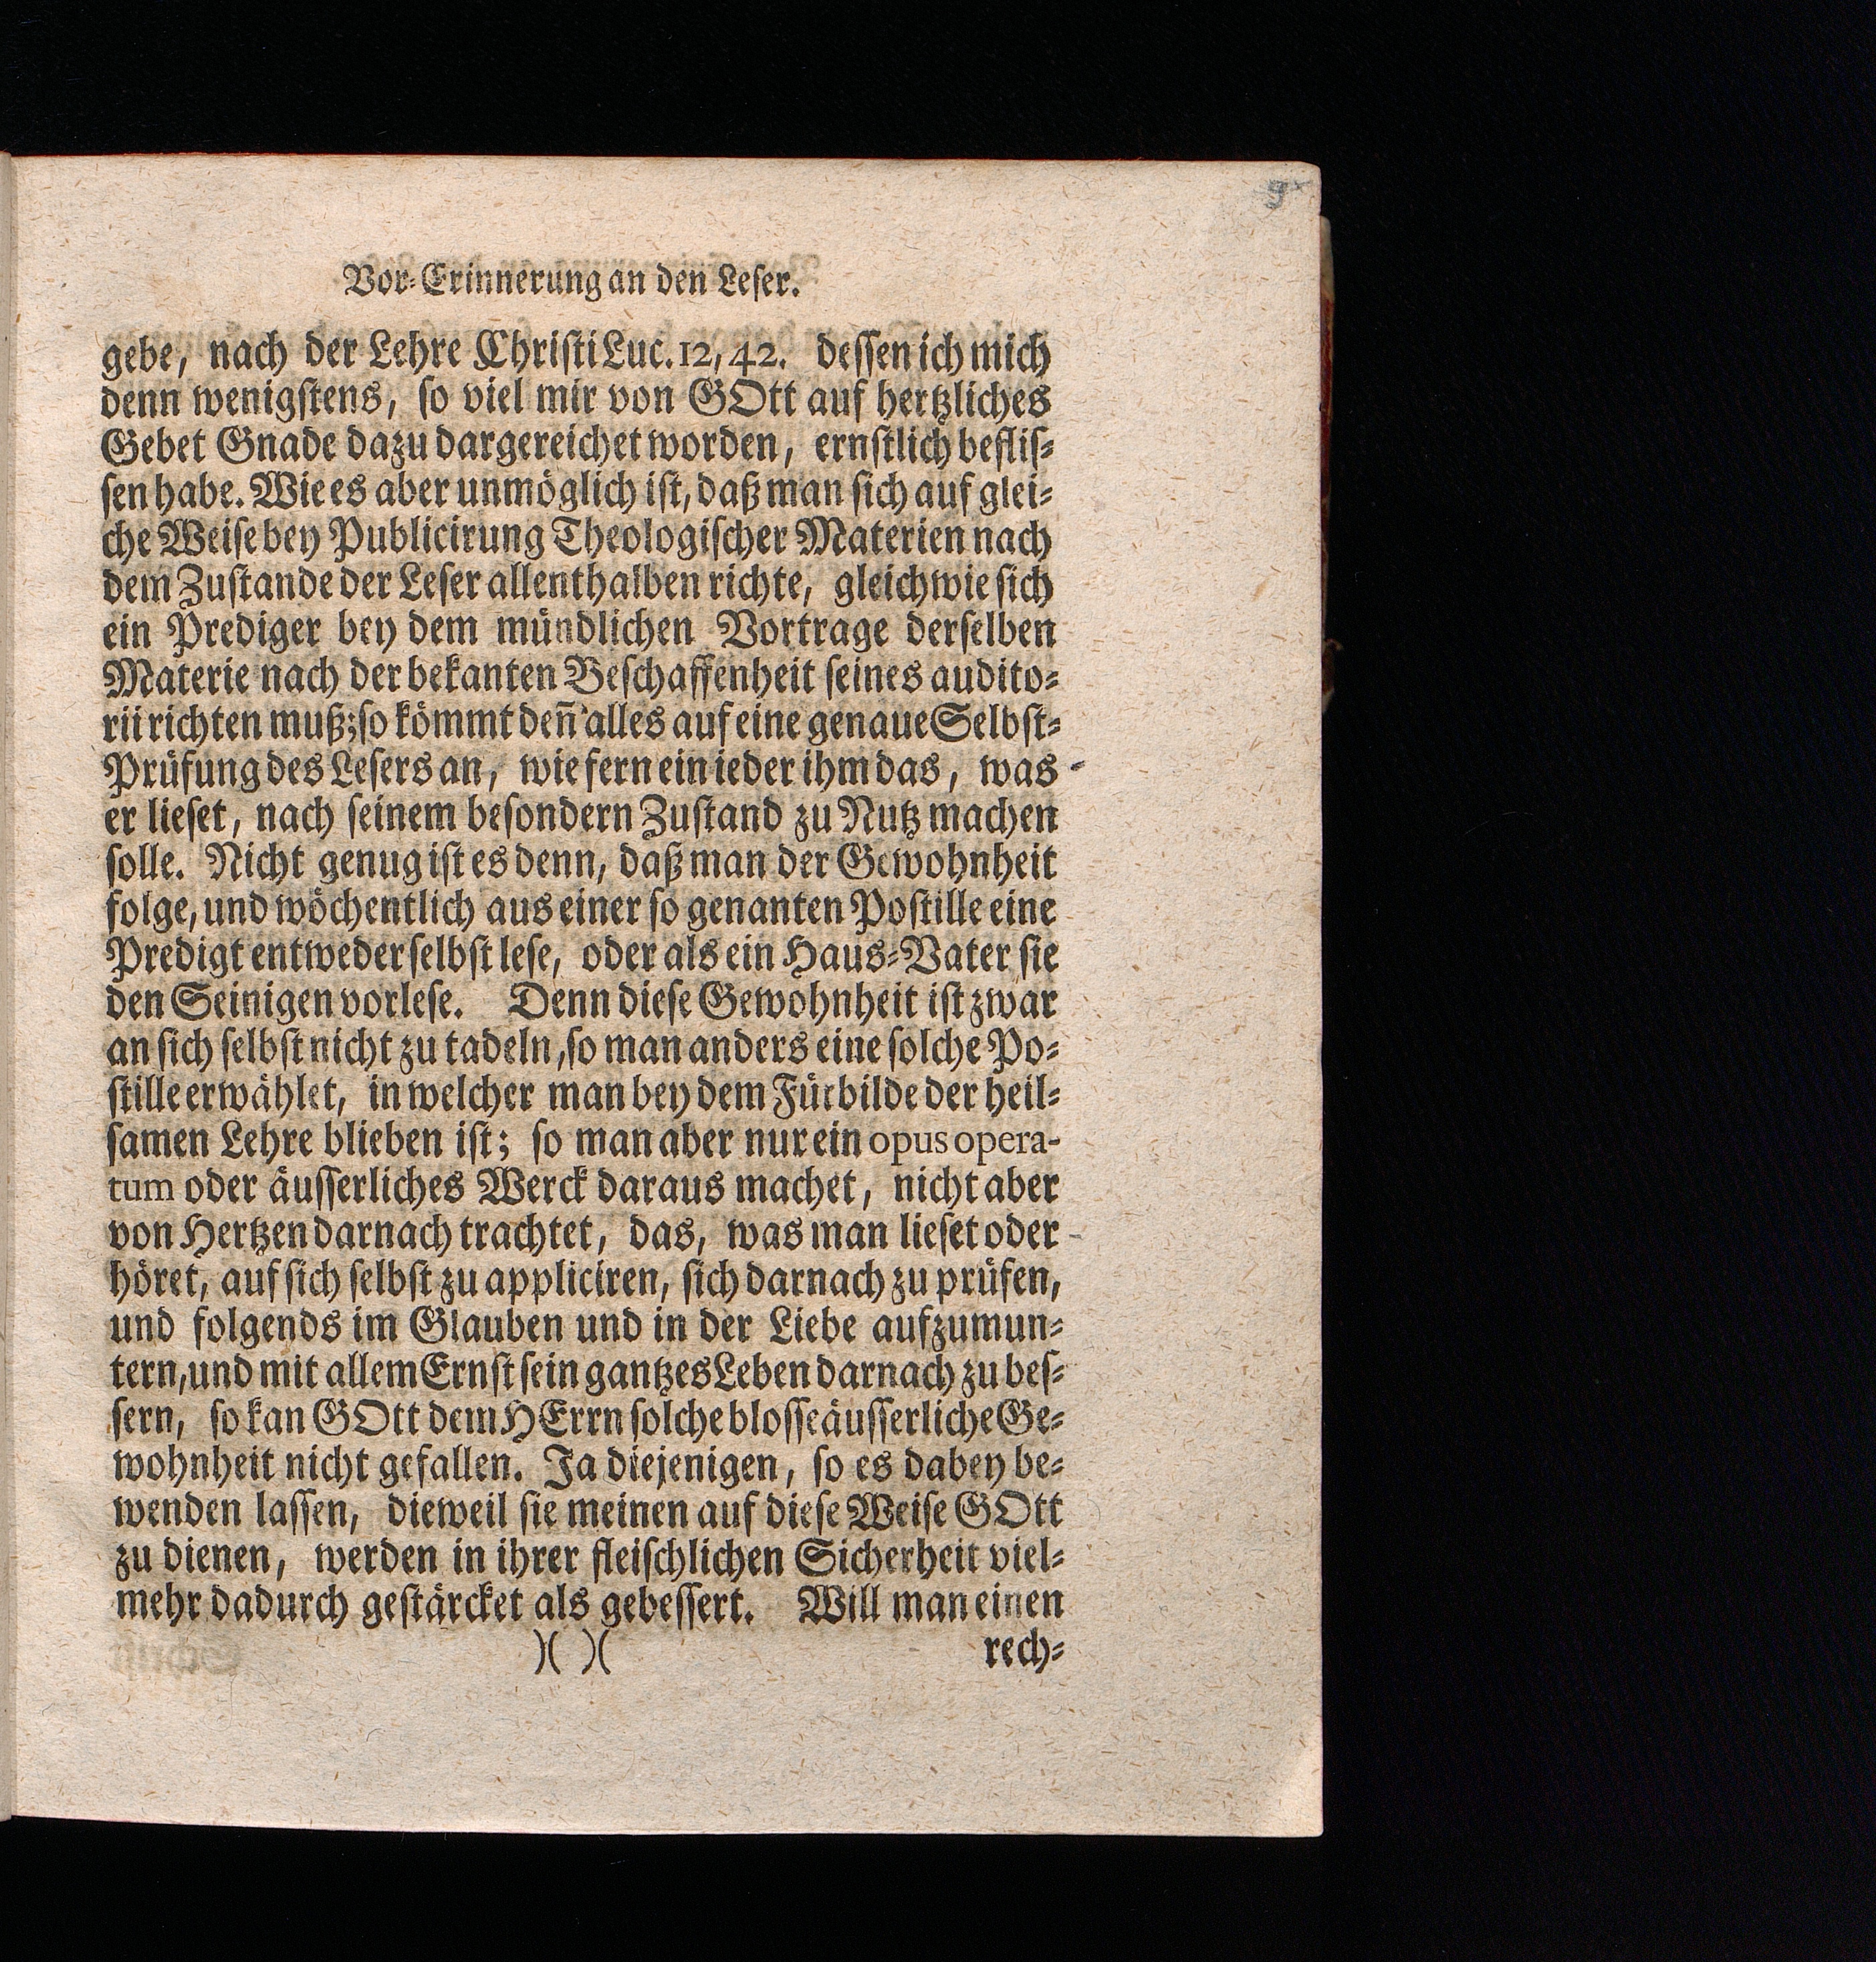 Vor-Erinnerung an den Leser.
gebe, nach der Lehre Christi Luc. 12, 42. dessen ich mich
denn wenigstens, so viel mir von GOtt auf hertzliches
Gebet Gnade dazu dargereichet worden, ernstlich beflis-
sen habe. Wie es aber unmöglich ist, daß man sich auf glei-
che Weise bey Publicirung Theologischer Materien nach
dem Zustande der Leser allenthalben richte, gleichwie sich
ein Prediger bey dem mündlichen Vortrage derselben
Materie nach der bekanten Beschaffenheit seines audito-
rii richten muß; so kömmt deñ alles auf eine genaue Selbst-
Prüfung des Lesers an, wie fern ein ieder ihm das, was
er lieset, nach seinem besondern Zustand zu Nutz machen
solle. Nicht genug ist es denn, daß man der Gewohnheit
folge, und wöchentlich aus einer so genanten Postille eine
Predigt entweder selbst lese, oder als ein Haus-Vater sie
den Seinigen vorlese. Denn diese Gewohnheit ist zwar
an sich selbst nicht zu tadeln, so man anders eine solche Po-
stille erwählet, in welcher man bey dem Fürbilde der heil-
samen Lehre blieben ist; so man aber nur ein opus opera-
tum oder äusserliches Werck daraus machet, nicht aber
von Hertzen darnach trachtet, das, was man lieset oder
höret, auf sich selbst zu appliciren, sich darnach zu prüfen,
und folgends im Glauben und in der Liebe aufzumun-
tern, und mit allem Ernst sein gantzes Leben darnach zu bes-
sern, so kan GOtt dem HErrn solche blosse äusserliche Ge-
wohnheit nicht gefallen. Ja diejenigen, so es dabey be-
wenden lassen, dieweil sie meinen auf diese Weise GOtt
zu dienen, werden in ihrer fleischlichen Sicherheit viel-
mehr dadurch gestärcket als gebessert. Will man einen
)( )( rech-